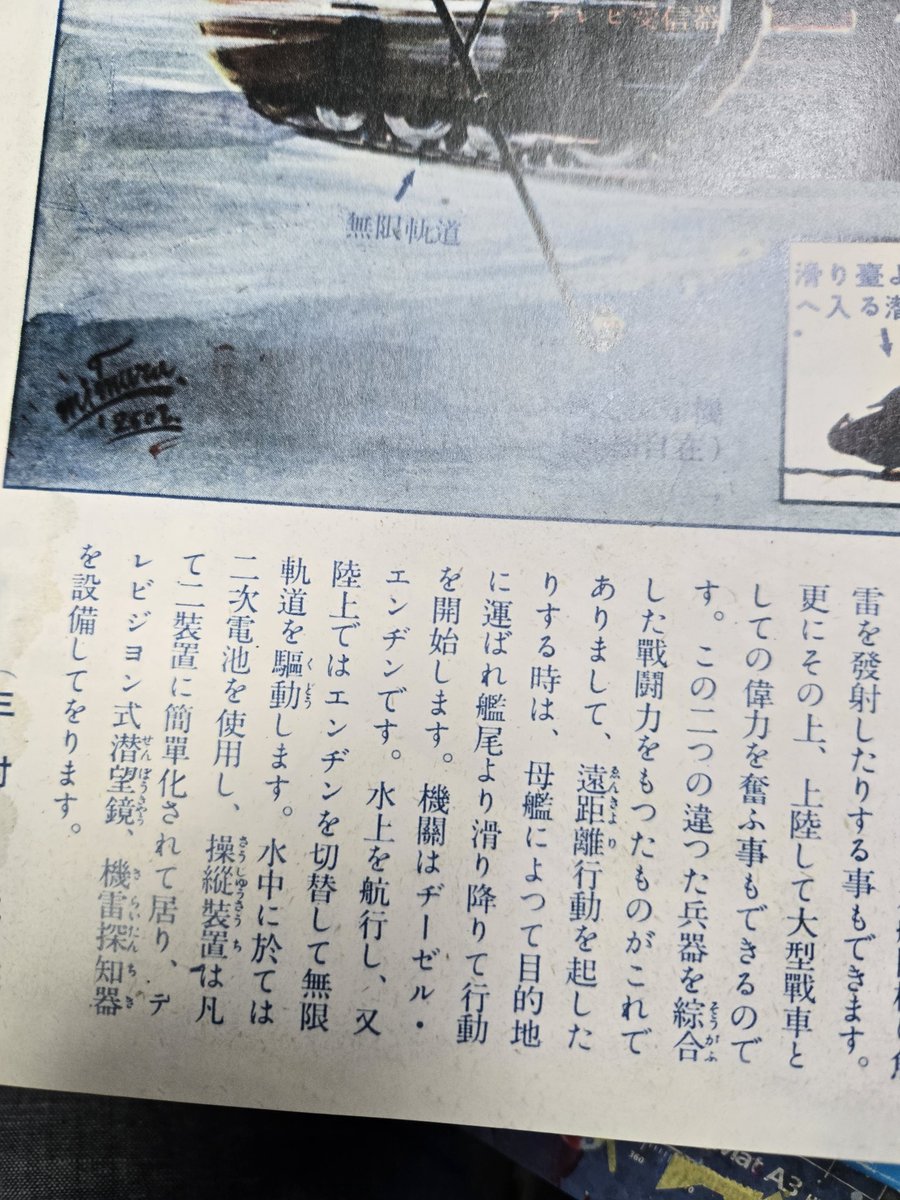 テレビ受信器
無限軌道
滑り臺よ
へ入る潜
2602
雷を發射したりする事もできます。
更にその上、上陸して大型戰車と
しての偉力を奮ふ事もできるので
す。この二つの違つた兵器を綜合
した戰闘力をもつたものがこれで
ありまして、遠距離行動を起した
りする時は、母艦によつて目的地
に運ばれ艦尾より滑り降りて行動
を開始します。機關はヂーゼル・
エンヂンです。水上を航行し、又
陸上ではエンヂンを切替して無限
軌道を驅動します。水中に於ては
二次電池を使用し、操縱装置は凡
て二装置に簡單化されて居り、テ
レビジヨン式潜望鏡、機雷探知器
を設備してをります。